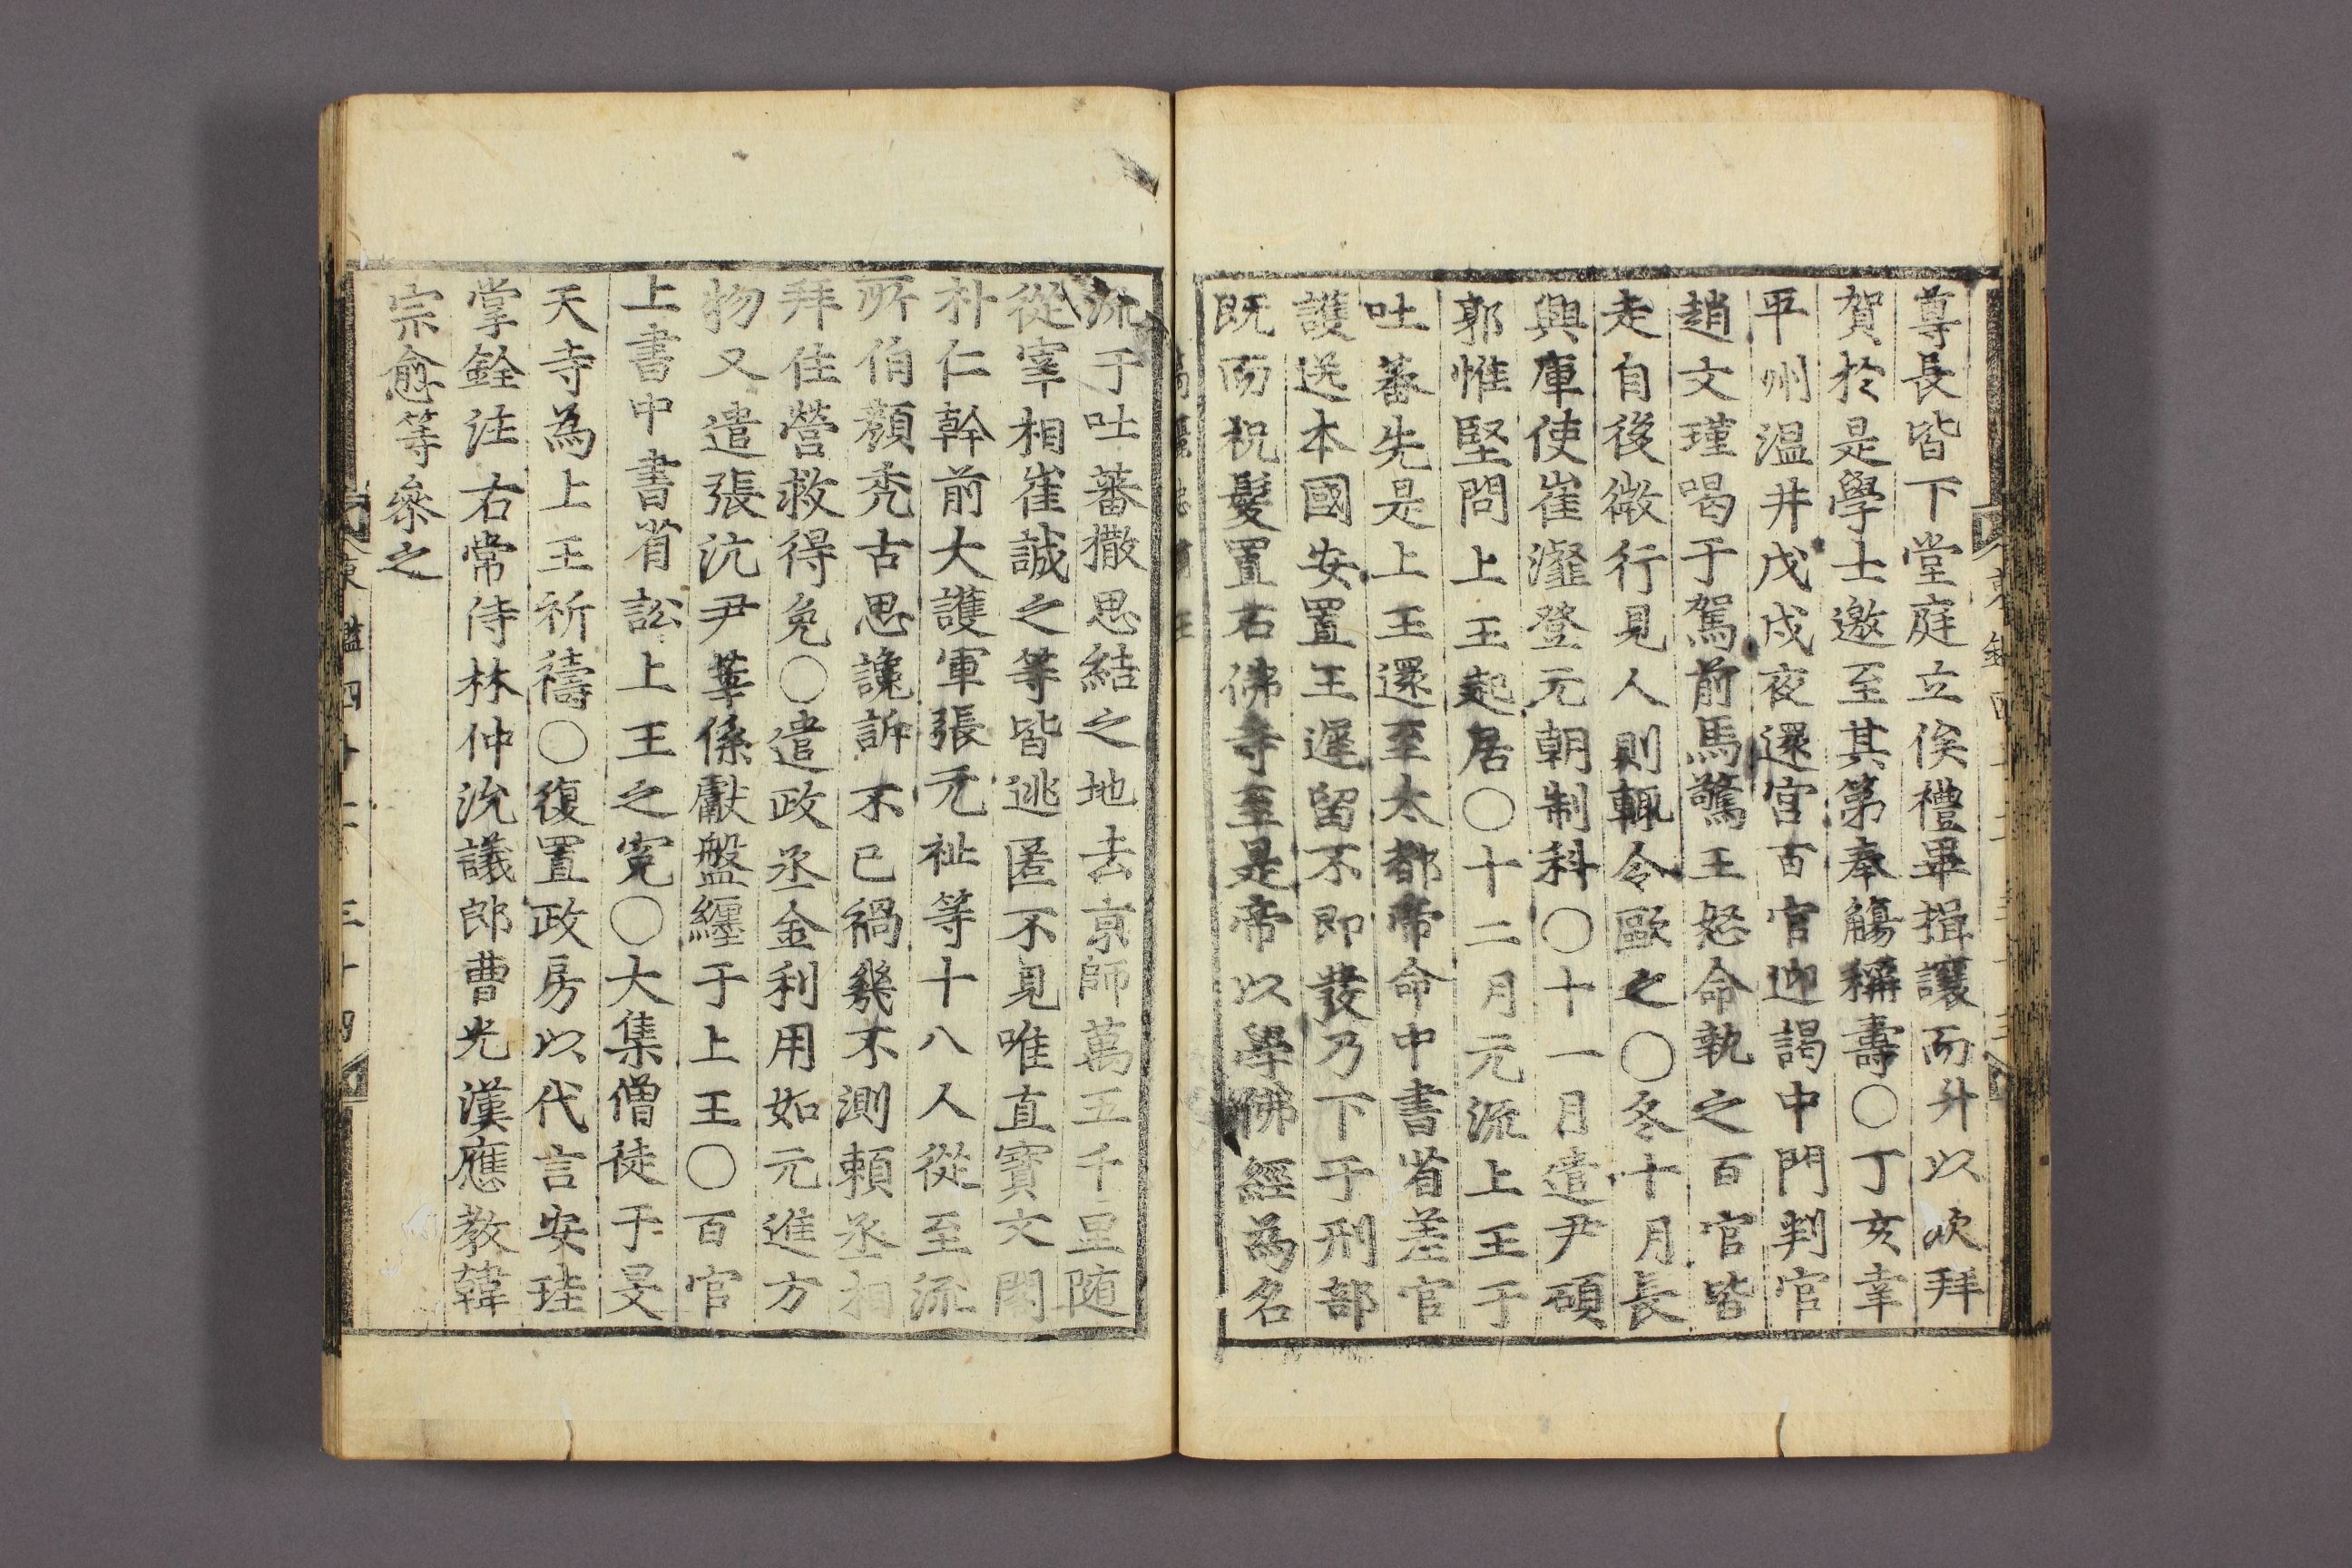 尊長皆下堂庭立俟禮畢揖讓而升以次拜
賀於是學士邀至其第奉觴稱壽○丁亥幸
平州温井戊戌夜還宫百官迎謁中門判官
趙文瑾喝于駕前馬驚王怒命執之百官皆
走自後微行見人則輒令歐之○冬十月長
興庫使崔瀣登元朝制科○十一月遣尹碩
郭惟堅問上王起居○十二月元流上王于
吐蕃先是上王還至太都帝命中書省差官
護送本國安置王遲留不即發乃下于刑部
既而祝髮置石佛寺至是帝以學佛經為名
流于吐蕃撒思結之地去京師萬五千里随
從宰相崔誠之等皆逃匿不見唯直寳文閣
朴仁幹前大護軍張元祉等十八人從至流
所伯顔秃古思讒訴不已禍幾不測頼丞相
拜住營救得免○遣政丞金利用如元進方
物又遣張沆尹莘係獻盤纒于上王○百官
上書中書省訟上王之寃○大集僧徒于旻
天寺為上王祈禱○復置政房以代言安珪
掌銓注右常侍林仲沇議郎曹光漢應教韓
宗愈等叅之
東鑑四十二 三十四